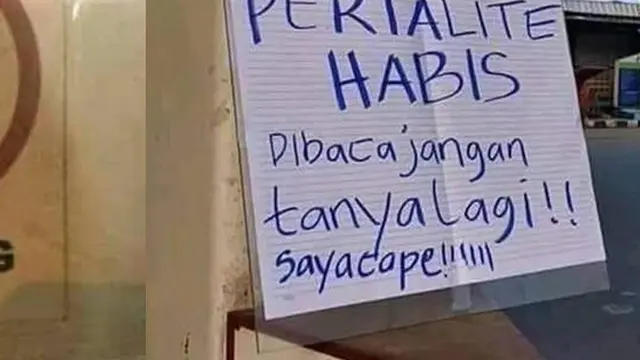 PERTALITE
HABIS
Dibaca jangan
tanya lagi!!
saya cape!!!!!!